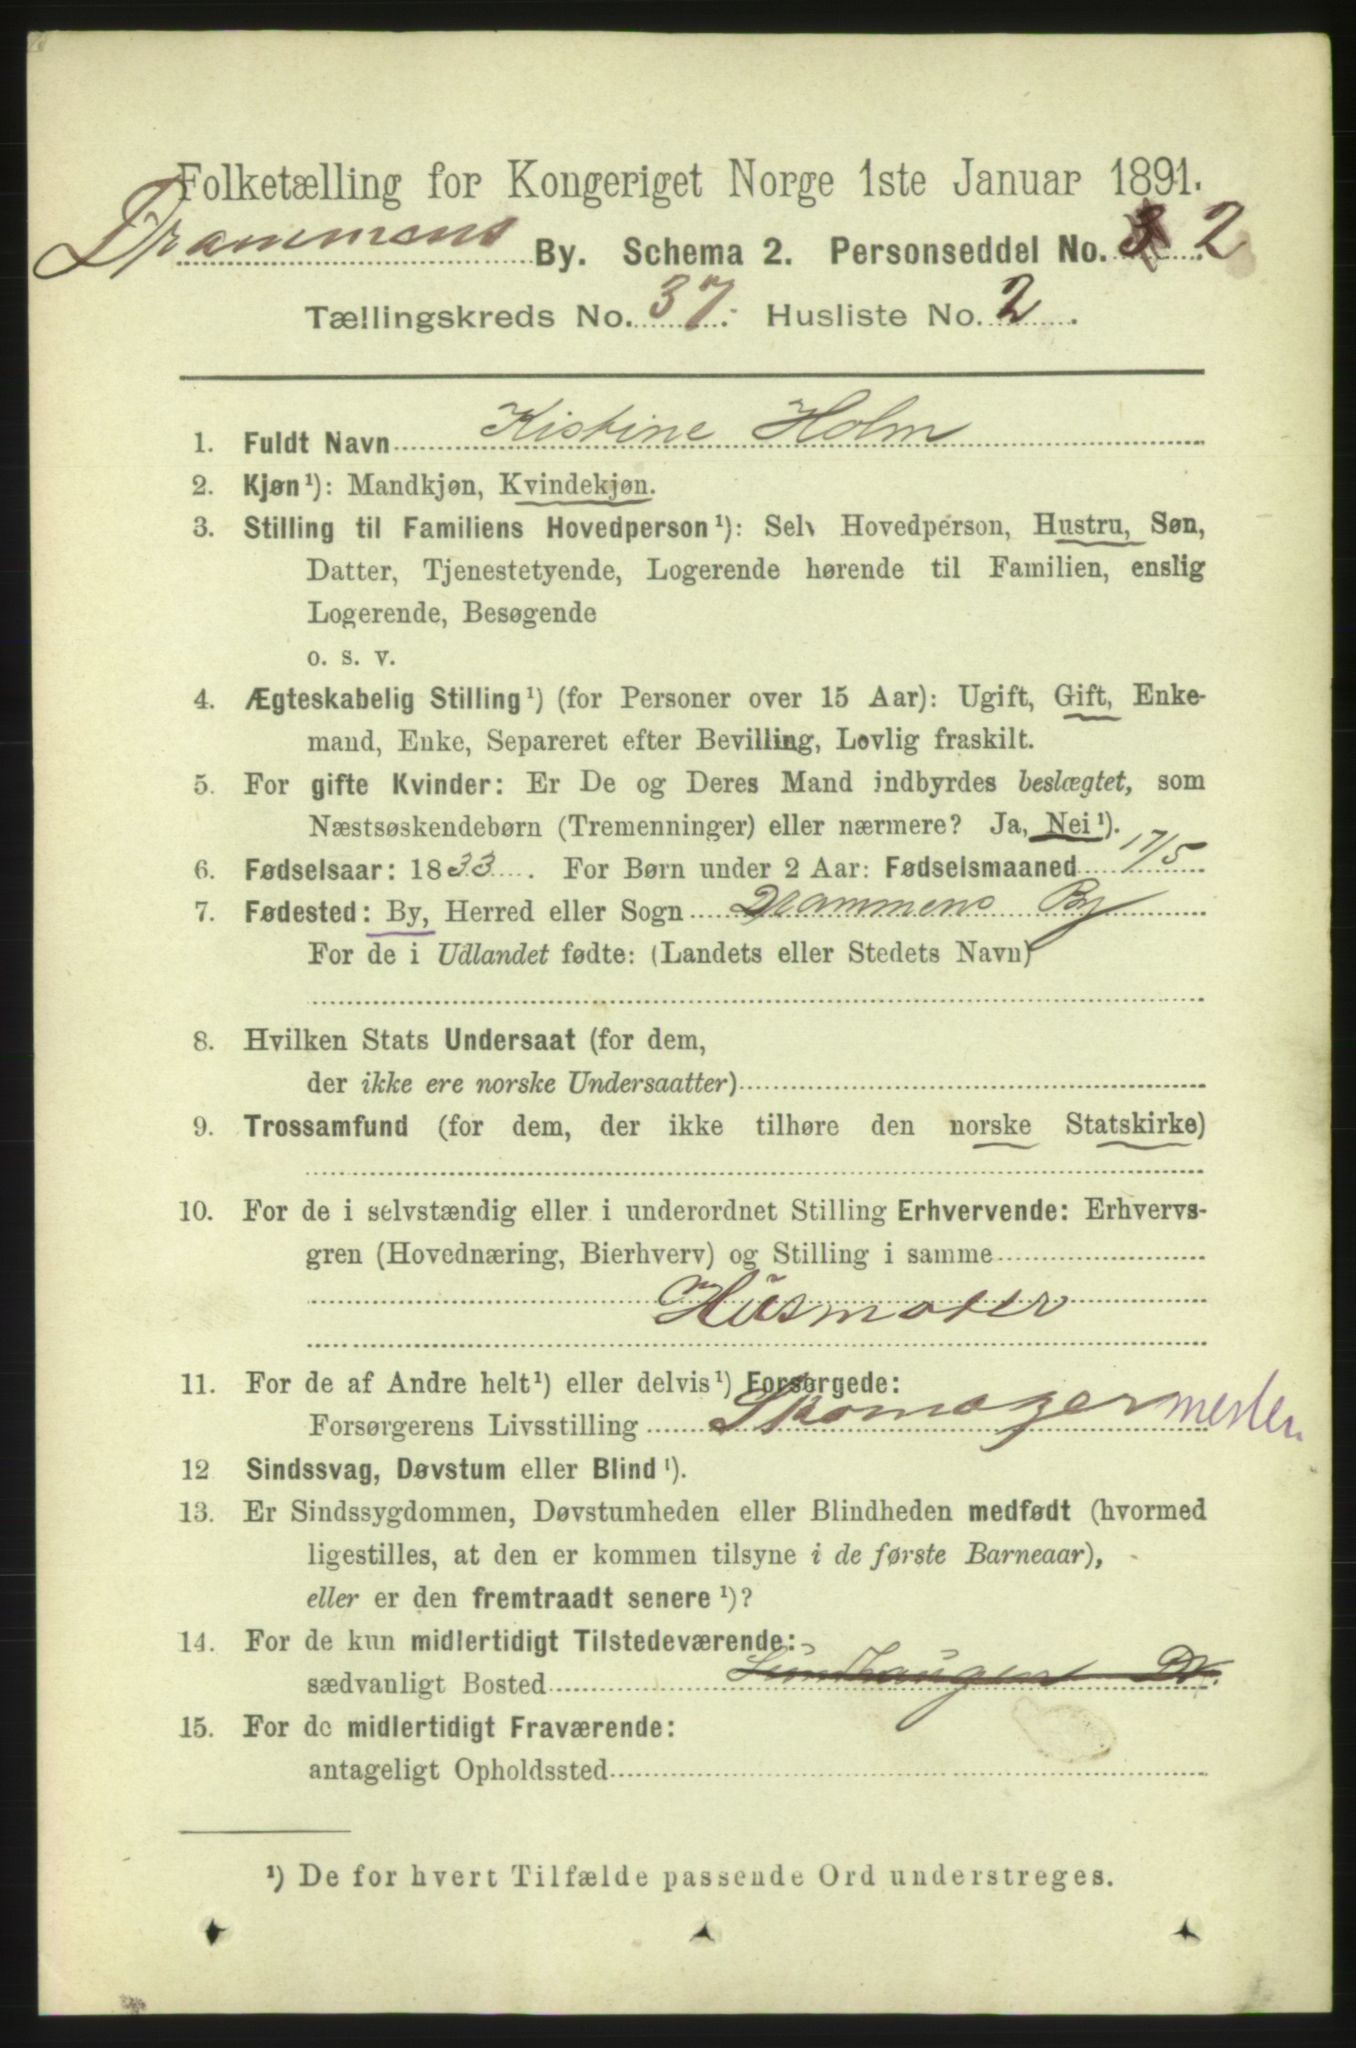 Folketælling for Kongeriget Norge 1ste Januar 1891.
Drammens By. Schema 2. Personseddel No. 3 2
Tællingskreds No. 37. Husliste No. 2
1. Fuldt Navn Kistine Holm
2. Kjøn¹): Mandkjøn, Kvindekjøn.
3. Stilling til Familiens Hovedperson¹): Selv Hovedperson, Hustru, Søn,
Datter, Tjenestetyende, Logerende hørende til Familien, enslig
Logerende, Besøgende
o. s. v.
4. Ægteskabelig Stilling¹) (for Personer over 15 Aar): Ugift, Gift, Enke-
mand, Enke, Separeret efter Bevilling, Lovlig fraskilt.
5. For gifte Kvinder: Er De og Deres Mand indbyrdes beslægtet, som
Næstsøskendebørn (Tremenninger) eller nærmere? Ja, Nei¹).
6. Fødselsaar: 1833. For Børn under 2 Aar: Fødselsmaaned 17/5
7. Fødested: By, Herred eller Sogn Drammens By
For de i Udlandet fødte: (Landets eller Stedets Navn)
8. Hvilken Stats Undersaat (for dem,
der ikke ere norske Undersaatter)
9. Trossamfund (for dem, der ikke tilhøre den norske Statskirke)
10. For de i selvstændig eller i underordnet Stilling Erhvervende: Erhvervs-
gren (Hovednæring, Bierhverv) og Stilling i samme
Husmoder
11. For de af Andre helt¹) eller delvis¹) Forsørgede:
Forsørgerens Livsstilling Skomagermester
12 Sindssvag, Døvstum eller Blind¹).
13. Er Sindssygdommen, Døvstumheden eller Blindheden medfødt (hvormed
ligestilles, at den er kommen tilsyne i de første Barneaar),
eller er den fremtraadt senere¹)?
14. For de kun midlertidigt Tilstedeværende:
sædvanligt Bosted
15. For de midlertidigt Fraværende:
antageligt Opholdssted
¹) De for hvert Tilfælde passende Ord understreges.